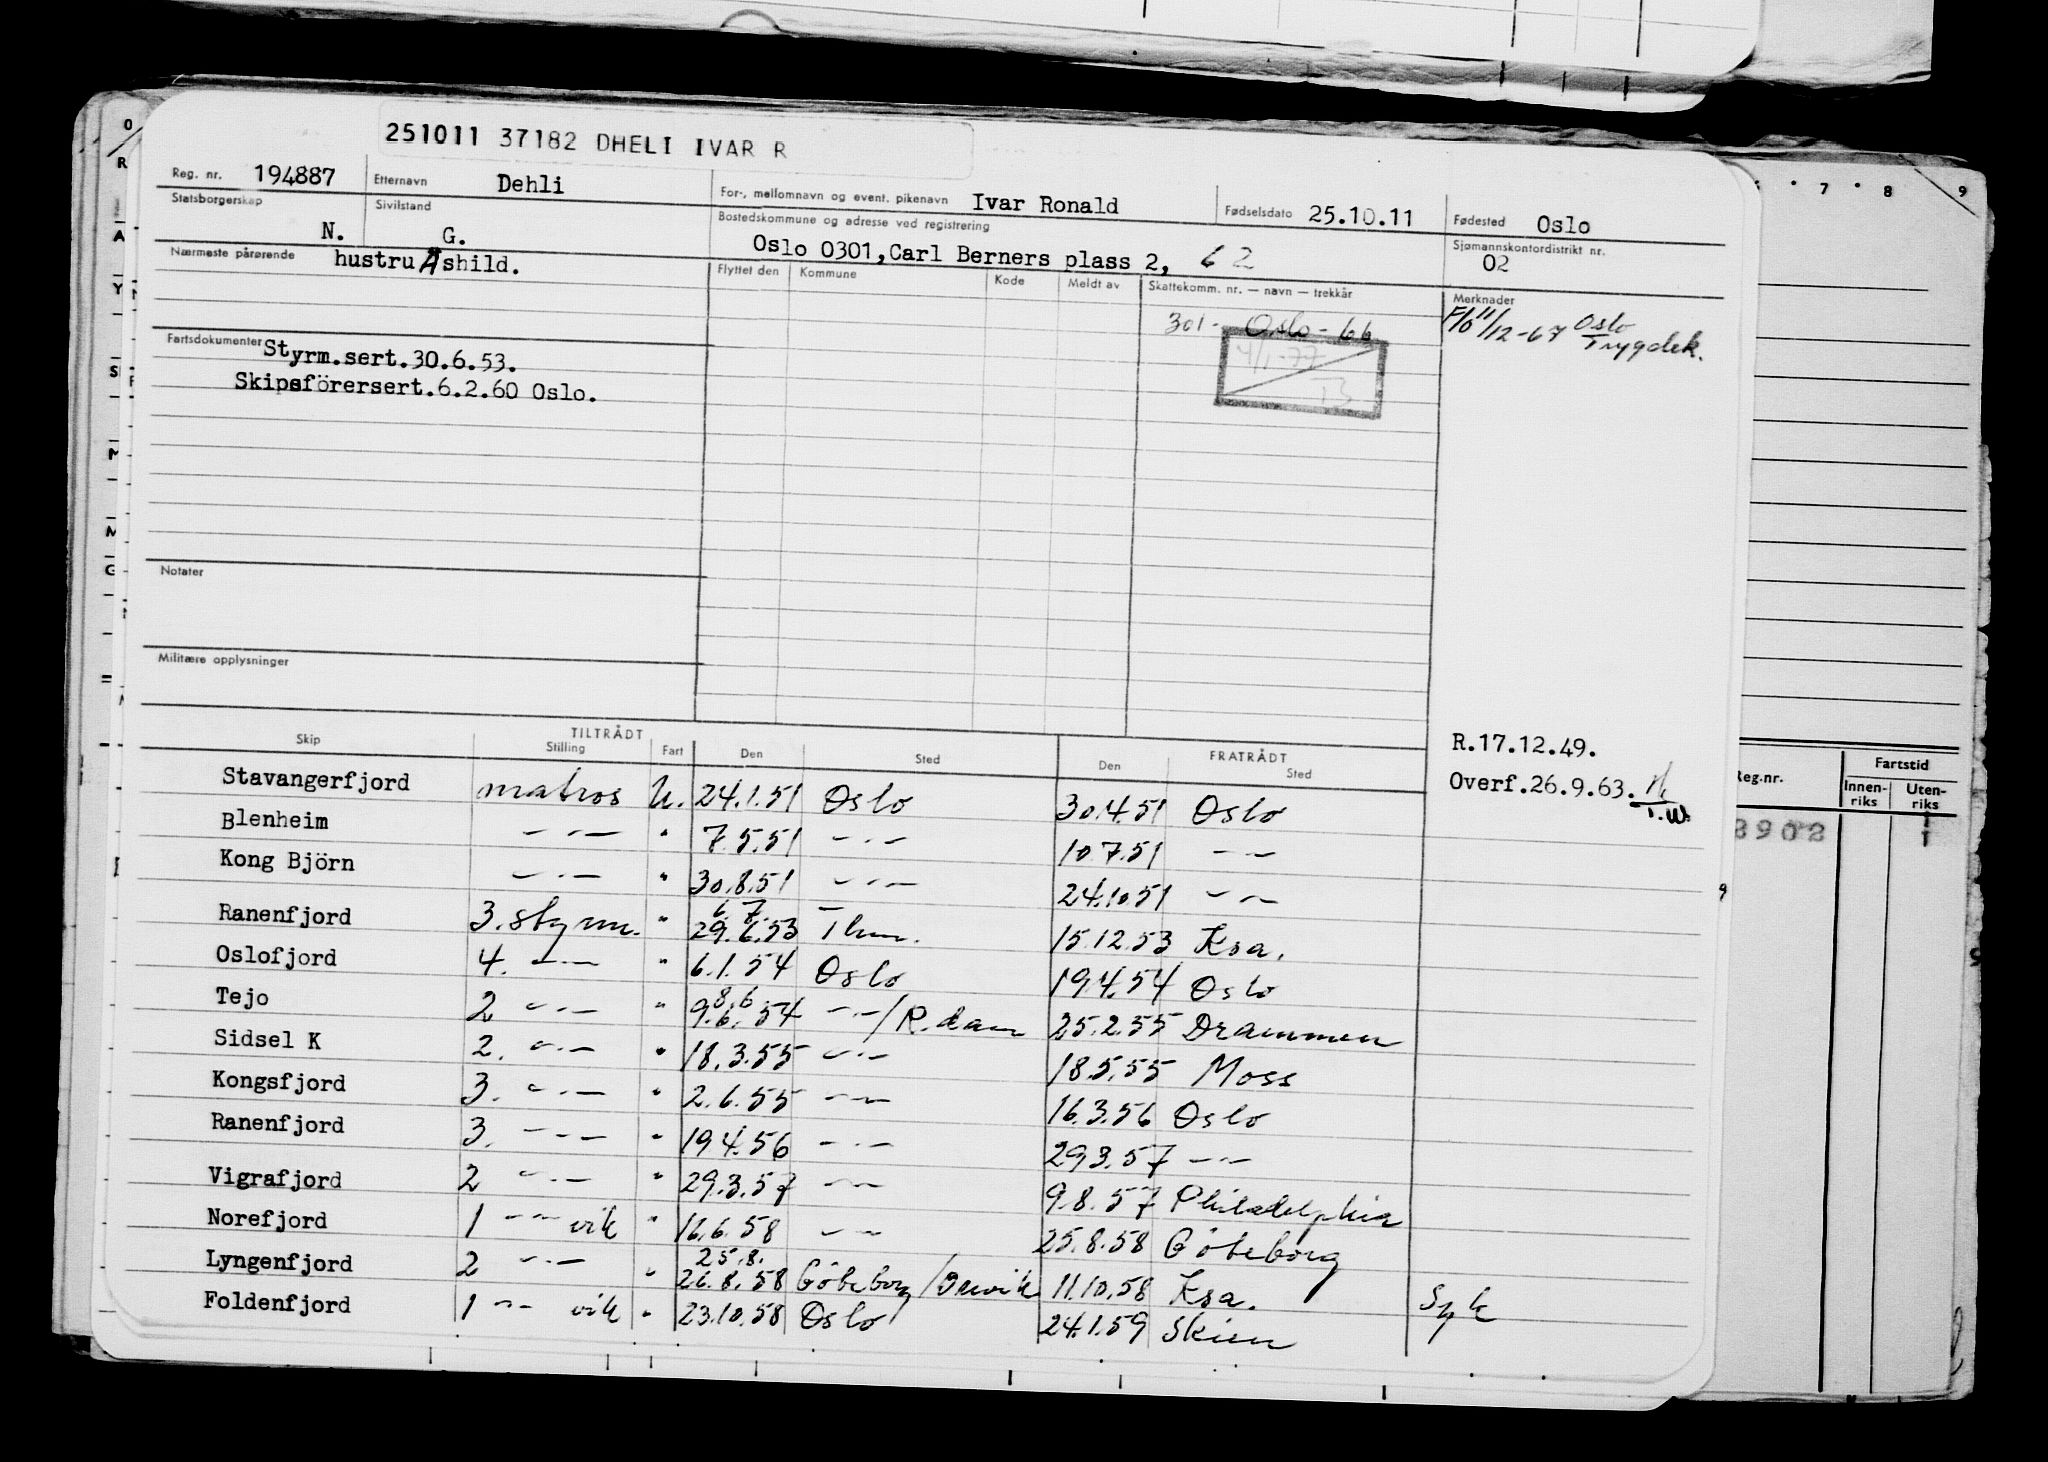 251011 37182 DHELI IVAR R
Reg. nr. 194887 Etternavn Dehli For-, mellomnavn og event. pikenavn Ivar Ronald Fødselsdato 25.10.11 Fødested Oslo
Statsborgerskap N. Sivilstand G. Bostedskommune og adresse ved registrering Oslo 0301, Carl Berners plass 2, 62 Sjømannskontordistrikt nr. 02
Nærmeste pårørende hustru Åshild. Flyttet den Kommune Kode Meldt av Skattekomm. nr. — navn — trekkår Merknader
301- Oslo - 66 11/12-67 Oslo Trygdek.
4/1-77
Fartsdokumenter Styrm.sert.30.6.53.
Skipsförersert.6.2.60 Oslo.
Notater
Militære opplysninger
R.17.12.49.
Overf.26.9.63. T.W.
TILTRÅDT FRATRÅDT
Skip Stilling Fart Den Sted Den Sted
Stavangerfjord matros U. 24.1.51 Oslo 30.4.51 Oslo
Blenheim —·— " 7.5.51 —·— 10.7.51 —·—
Kong Björn —·— " 30.8.51 —·— 24.10.51 —·—
Ranenfjord 3.styrm. " 6.7. 29.6.53 Thm. 15.12.53 Ksa.
Oslofjord 4. —·— " 6.1.54 Oslo 19.4.54 Oslo
Tejo 2 —·— " 8.6 9.6.54 —·—/R.dam 25.2.55 Drammen
Sidsel K 2. —·— " 18.3.55 —·— 18.5.55 Moss
Kongsfjord 3. —·— " 2.6.55 —·— 16.3.56 Oslo
Ranenfjord 3. —·— " 19.4.56 —·— 29.3.57 —·—
Vigrafjord 2 —·— " 29.3.57 —·— 9.8.57 Philadelphia
Norefjord 1 —·— vik " 16.6.58 —·— 25.8.58 Göteborg
Lyngenfjord 2 —·— " 25.8. 26.8.58 Göteborg / 11.10.58 Ksa. Syk
Foldenfjord 1 —·— vik " 23.10.58 Oslo 24.1.59 Skien
7 8 9
Reg.nr. Fartstid
Innen-riks Uten-riks
3902